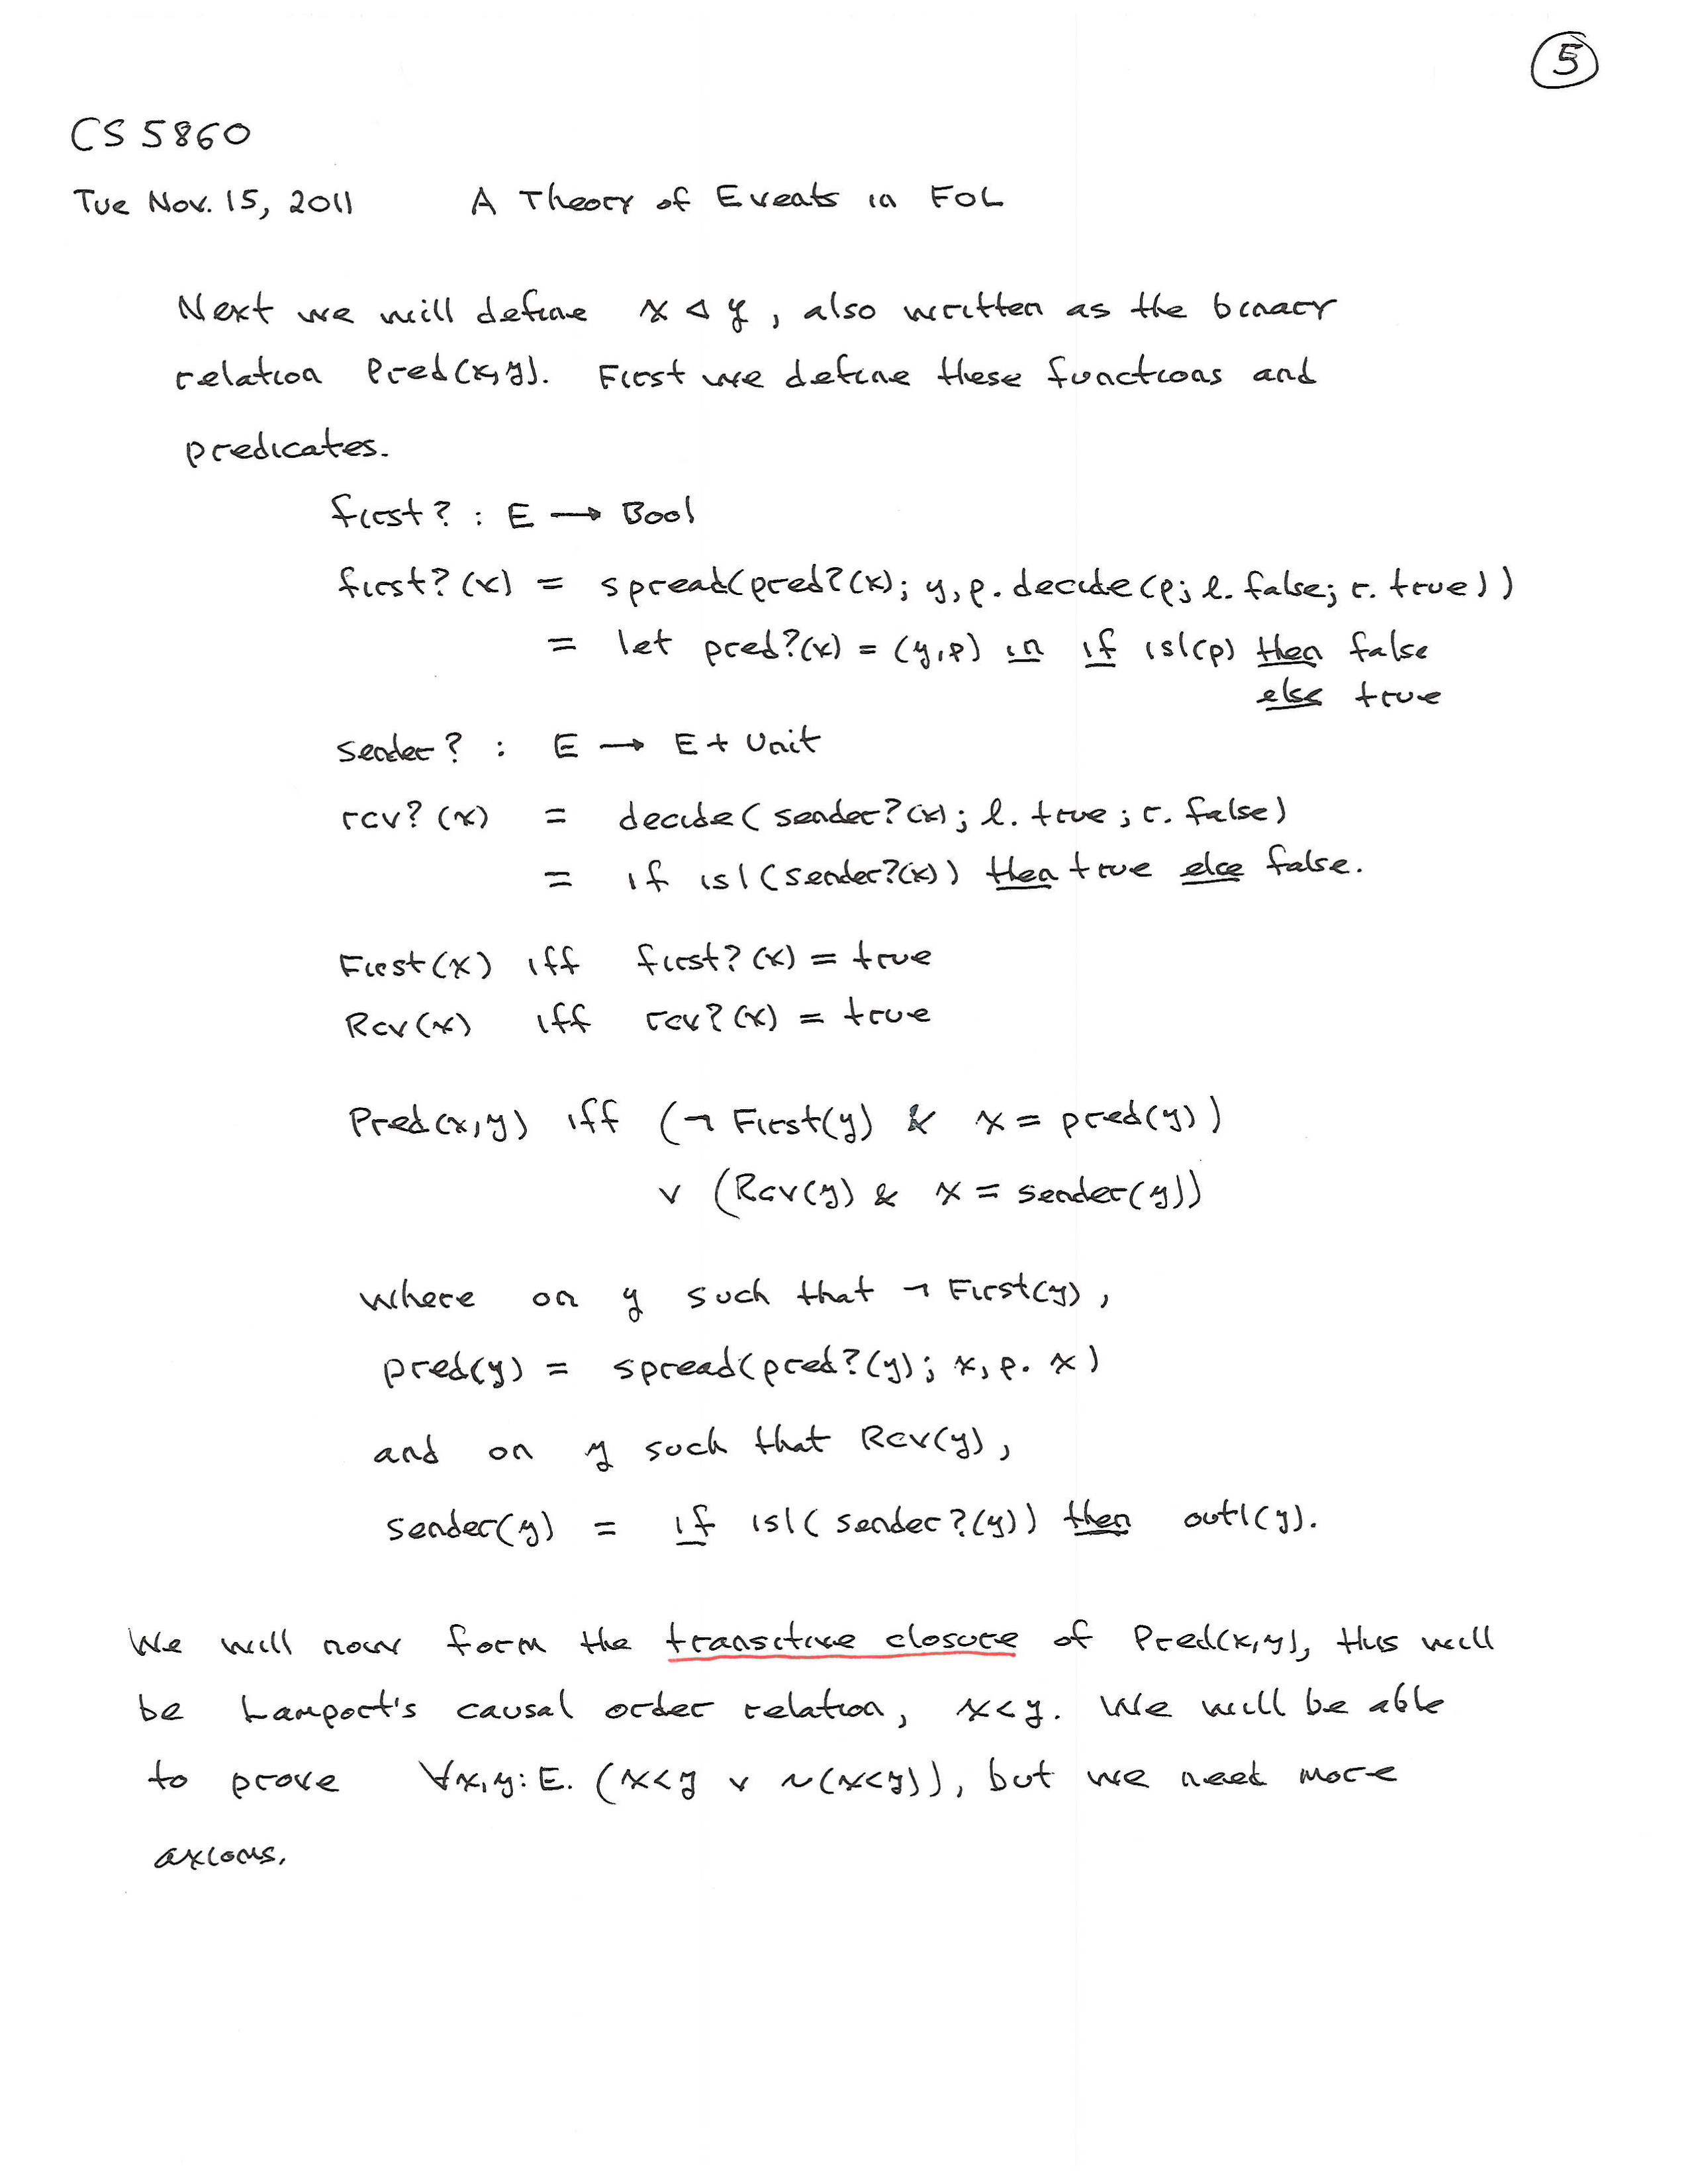 5
CS 5860
Tue Nov. 15, 2011 A Theory of Events in FOL
Next we will define x ◁ y, also written as the binary
relation Pred(x,y). First we define these functions and
predicates.
first? : E → Bool
first?(x) = spread(pred?(x); y,p. decide(p; l. false; r. true))
= let pred?(x) = (y,p) in if isl(p) then false
else true
Sender? : E → E + Unit
rcv?(x) = decide(sender?(x); l. true; r. false)
= if isl(sender?(x)) then true else false.
First(x) iff first?(x) = true
Rcv(x) iff rcv?(x) = true
Pred(x,y) iff (¬ First(y) & x = pred(y))
∨ (Rcv(y) & x = sender(y))
where on y such that ¬ First(y),
pred(y) = spread(pred?(y); x,p. x)
and on y such that Rcv(y),
sender(y) = if isl(sender?(y)) then outl(y).
We will now form the transitive closure of Pred(x,y), this will
be Lamport's causal order relation, x<y. We will be able
to prove ∀x,y:E. (x<y ∨ ~(x<y)), but we need more
axioms.